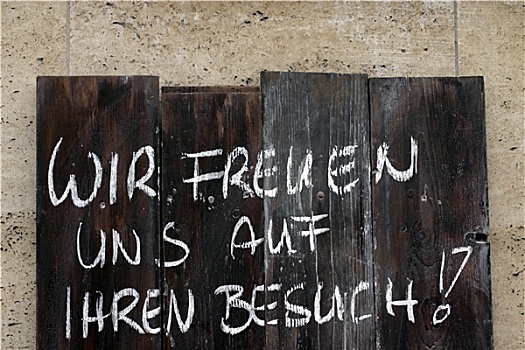 WIR FREUEN
UNS AUF
IHREN BESUCH!